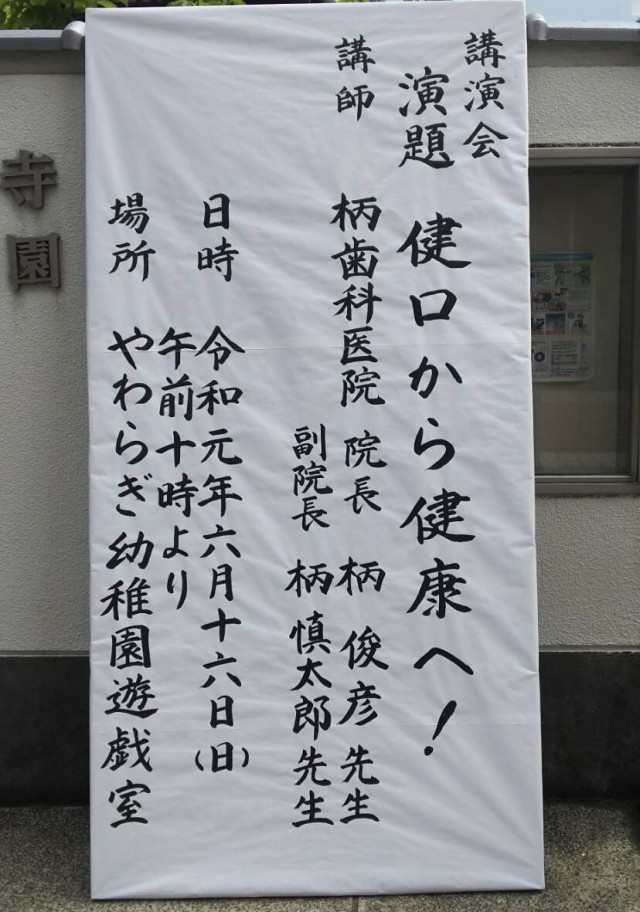 講演会
演題 健口から健康へ!
講師 柄歯科医院 院長 柄 俊彦 先生
副院長 柄 慎太郎 先生
日時 令和元年六月十六日(日)
午前十時より
場所 やわらぎ幼稚園遊戯室
寺
園